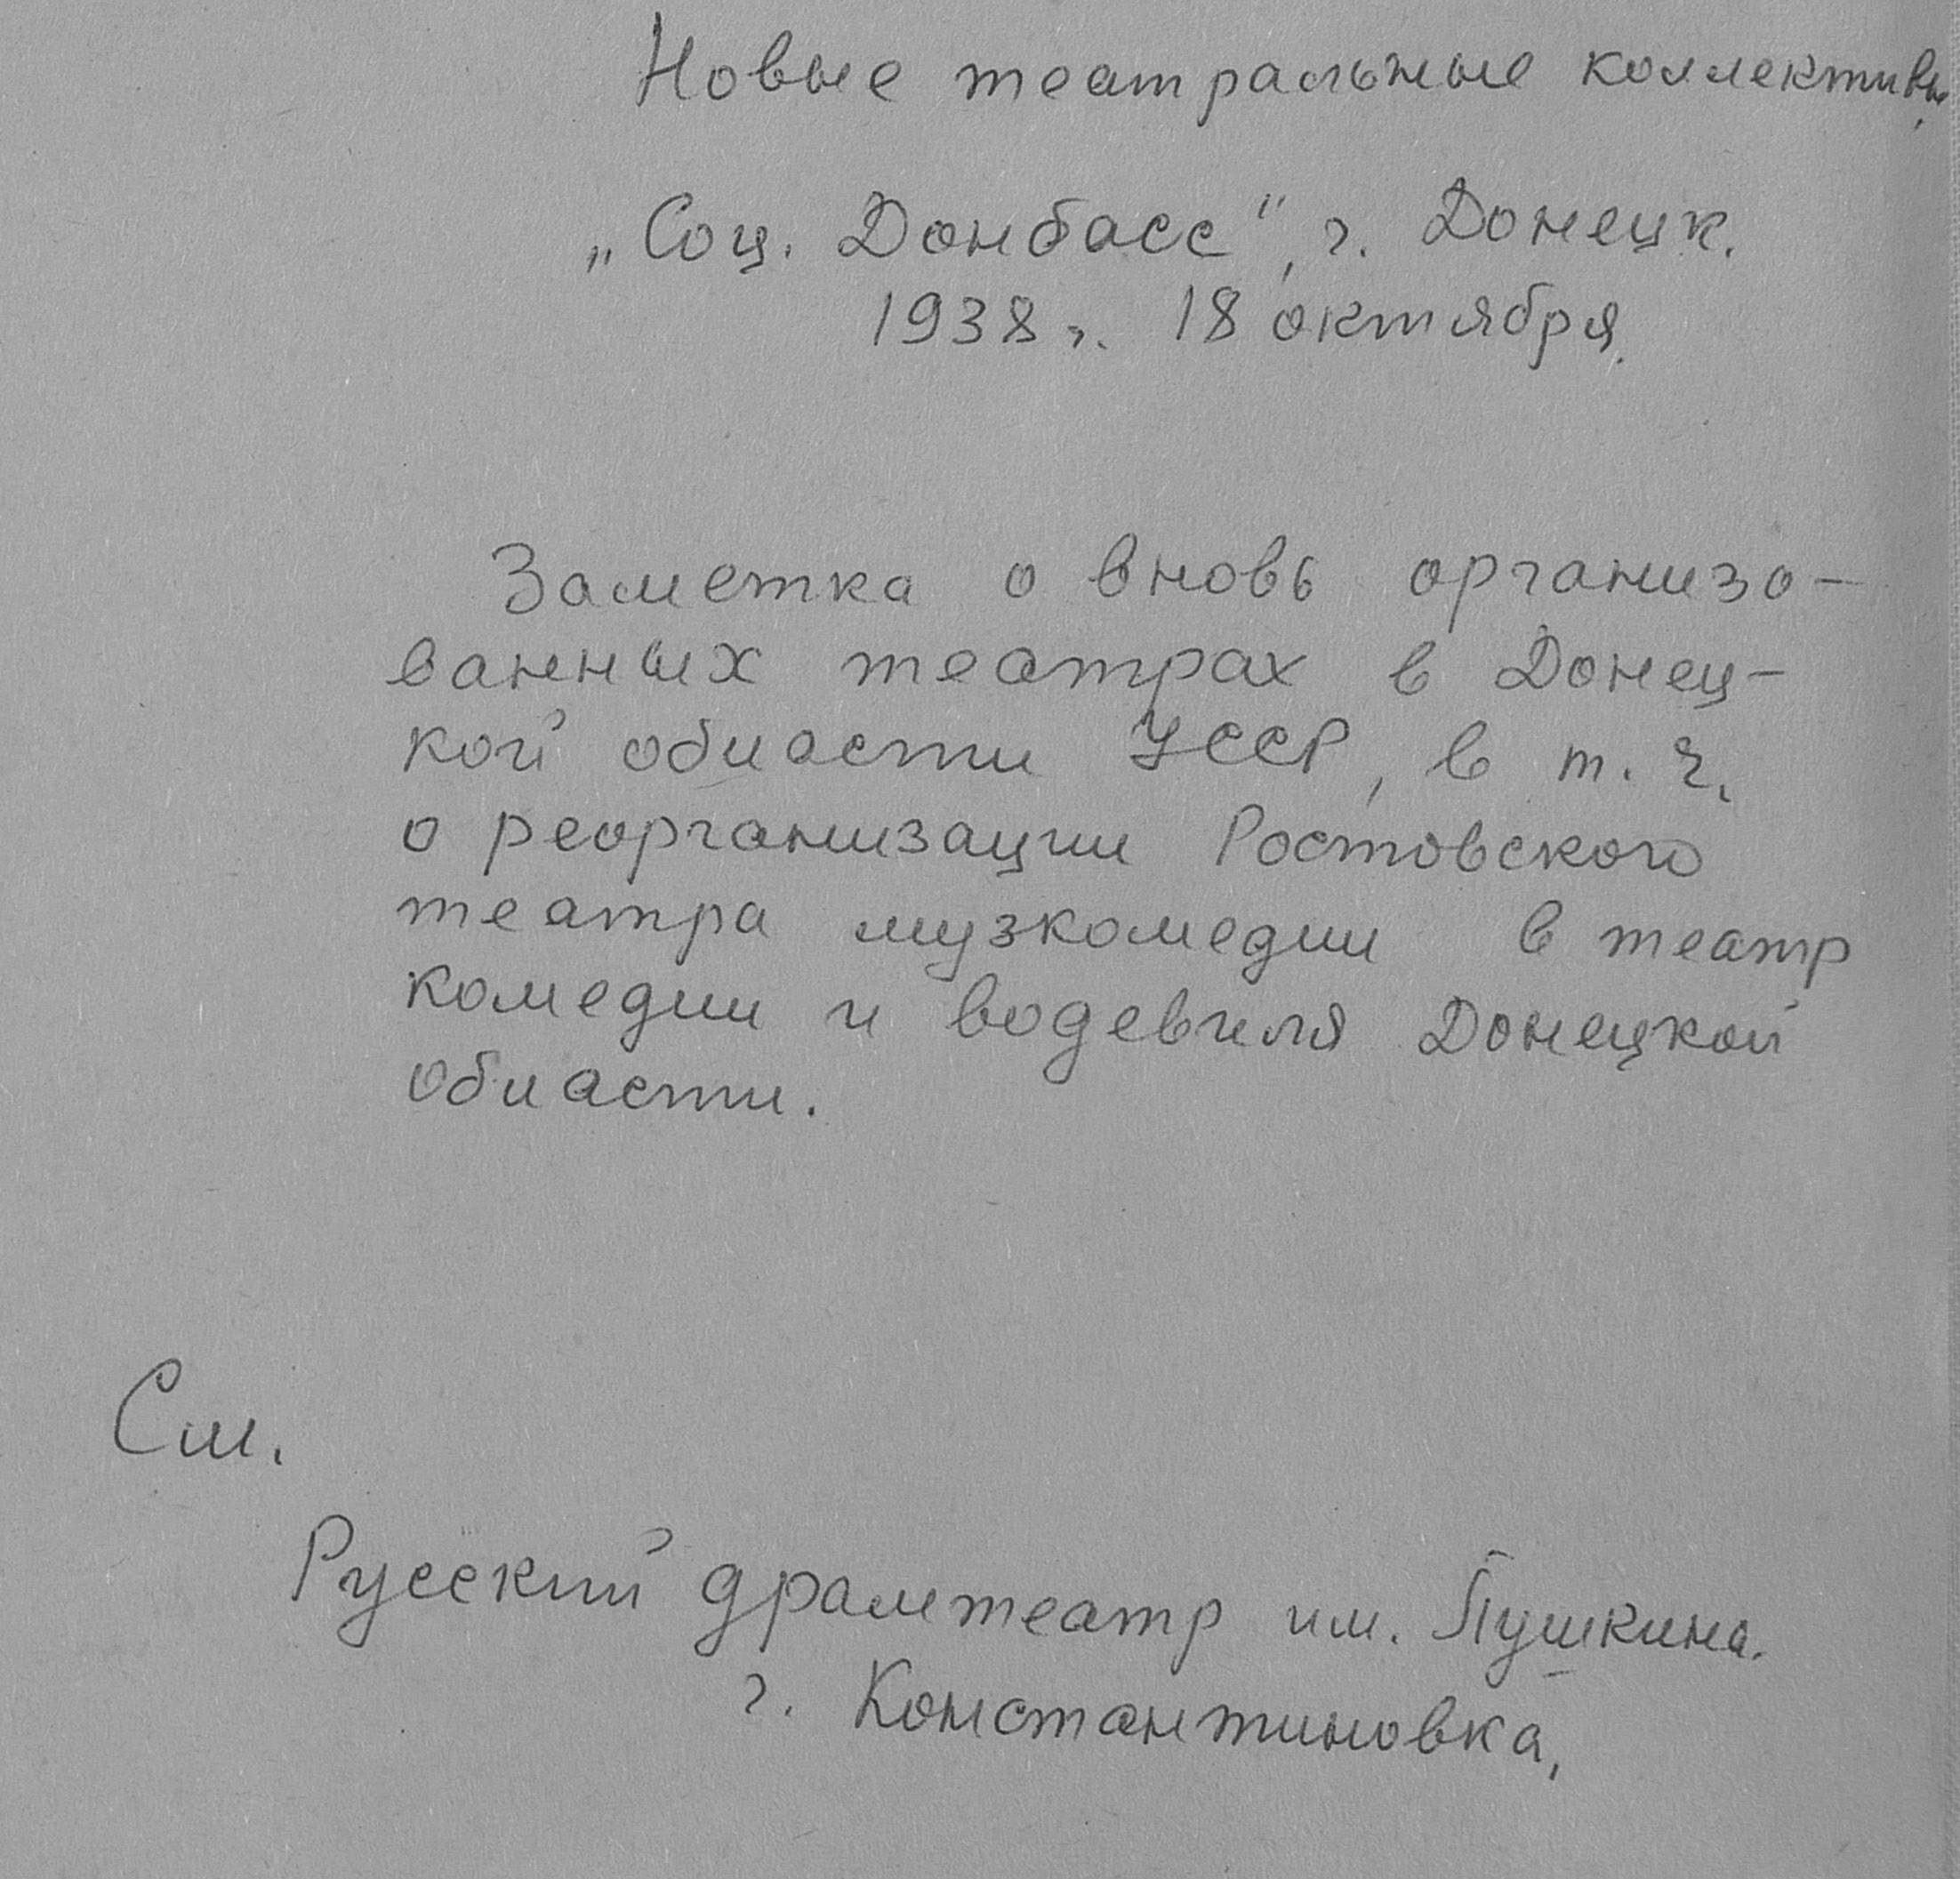 Новые театральные коллективы.
„Соц. Донбасс", г. Донецк.
1938 г. 18 октября.
Заметка о вновь организо-
ванных театрах в Донец-
кой области УССР, в т. ч.
о реорганизации Ростовского
театра музкомедии в театр
комедии и водевиля Донецкой
области.
См.
Русский драмтеатр им. Пушкина.
г. Константиновка,